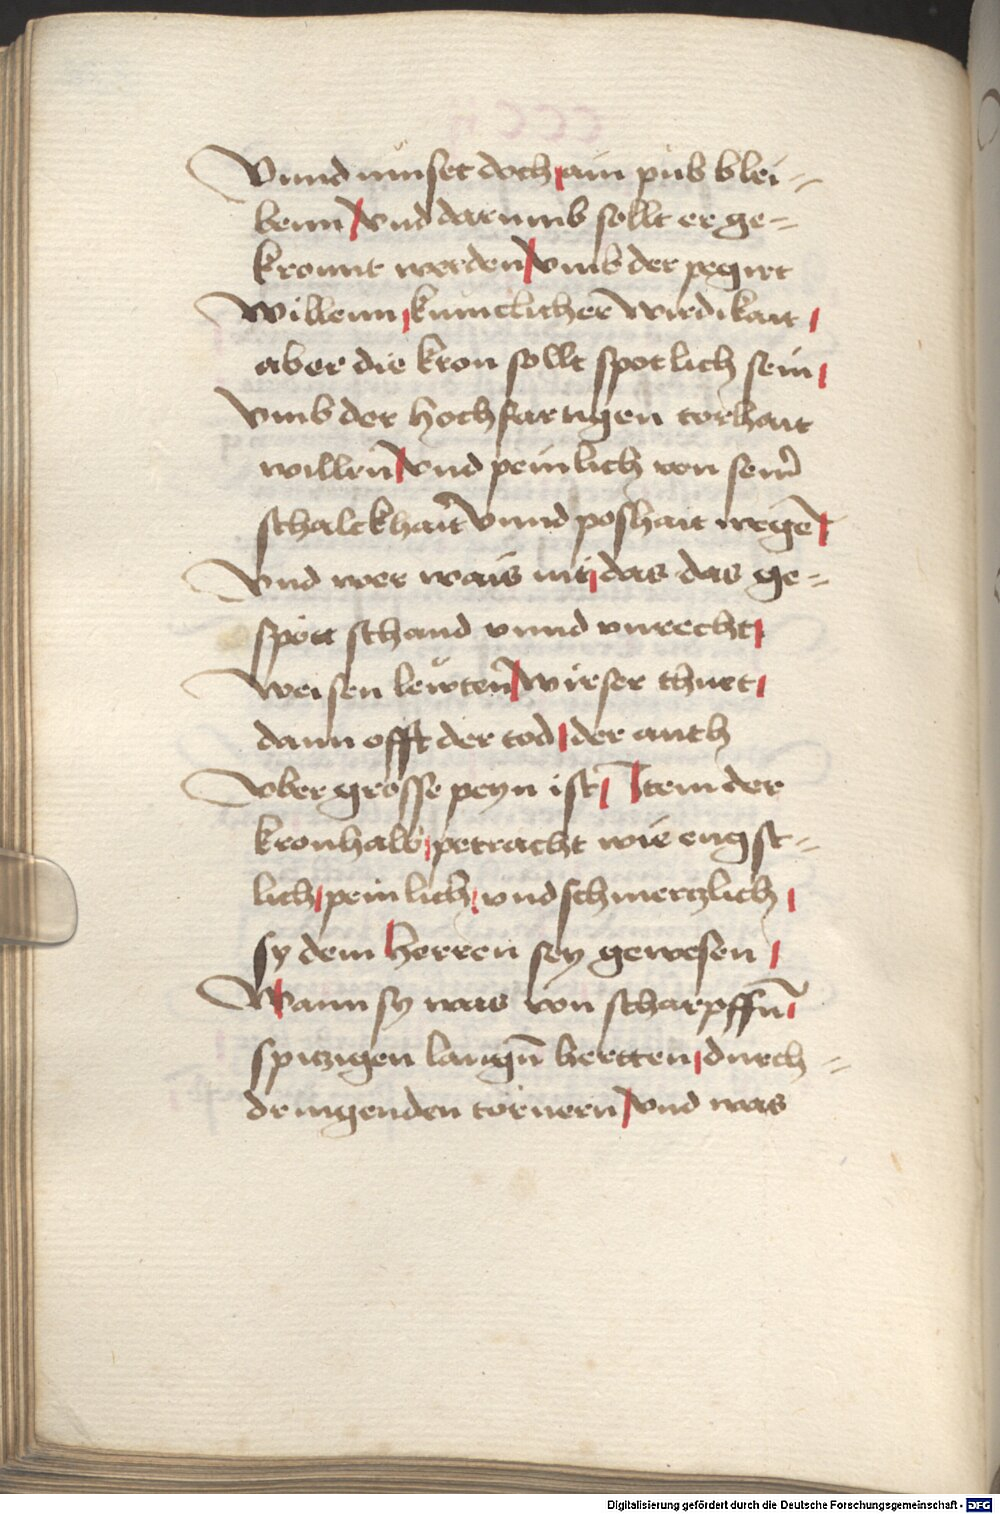 Vnnd müset doch ain pub blei-
benn vnd darumb sollt er ge-
kronnt werden vmb der pegirt
willenn kunicklicher wirdikait
aber die kron sollt spotlich sein
vmb der hochfartigen torhait
willen̄ vnd peinlich von sein̄
schalckhait vnnd poshait wegē
Vnd wer wais nit das das ge-
spött schand vnnd vnrecht
weisen lewten̄ wirser thuet
dann offt der tod der auch
vber grosse peyn ist Item der
kronhalb petracht wie engst-
lich peinlich vnd schmertzlich
sy dem herren sey gewesen
Wann sy was von scharpffn̄
spitzigen langn̄ hertten durch-
dringenden törnern vnd was
Digitalisierung gefördert durch die Deutsche Forschungsgemeinschaft - DFG